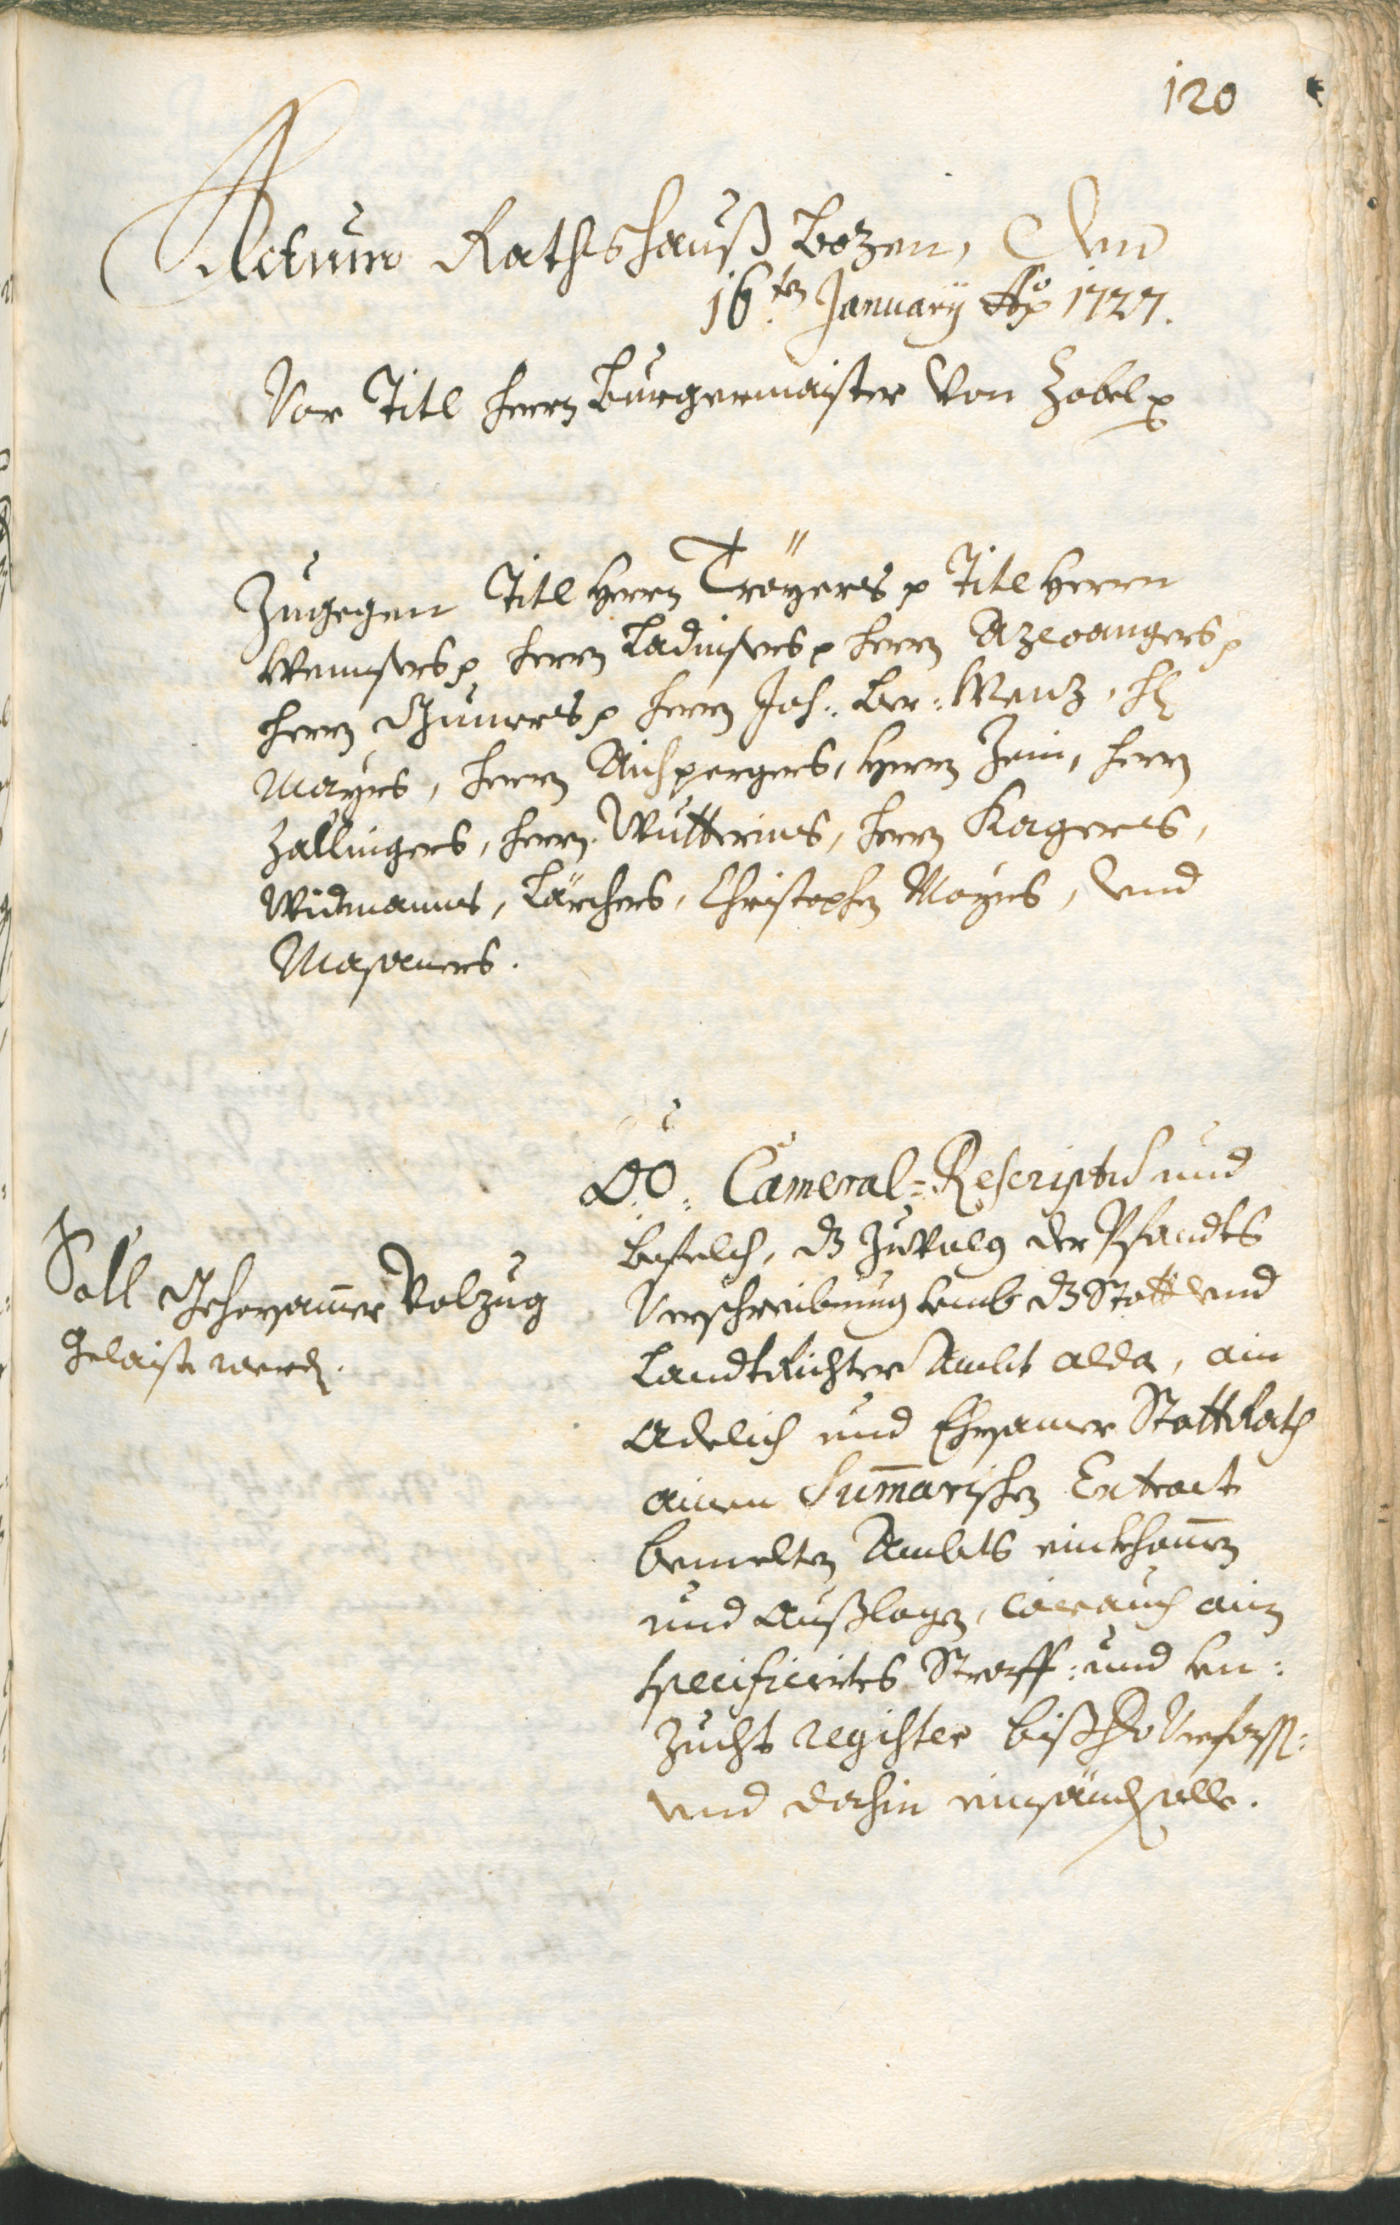 120
Actum Rathshauß Bozen, den
16.ten January Ao 1727.
Vor Titl herrn Burgermaister von Zobel p
Zugegen Titl Herrn Tröyers p Titl Herrn
Wennsers p herrn Ladinsers p herrn Azwangers p
herrn Gumers p herrn Jos: Ber: Wenz, hr
Mayrs, herrn Aichpergers, herrn Zein, herrn
Zallingers, herrn Wutterins, herrn Kagers,
Widmanns, Lärchers, Christophen Mayrs, und
Masaners.
Soll Gehorsamer Volzug
gelaist werden.
OÖ: Cameral-Rescriptum und
befelch, dz zuvolg der Pfandts
Verschreibung umb dz Statt und
Landtrichter Ambt alda, ain
Adelich und Ehrsamer StattRath
ainen Summarischen Extract
bemelten Ambts einkhomen
und Außlagen, wie auch ain
specificiertes Straff: und un:
zucht register bißhero verfassen:
und dahin einsänden solle.